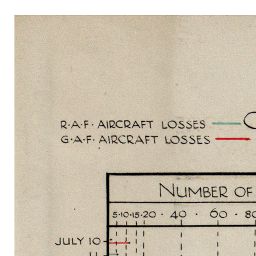 R·A·F· AIRCRAFT LOSSES
G·A·F· AIRCRAFT LOSSES
NUMBER OF
5·10·15·20 · 40 · 60 · 80
JULY 10
11